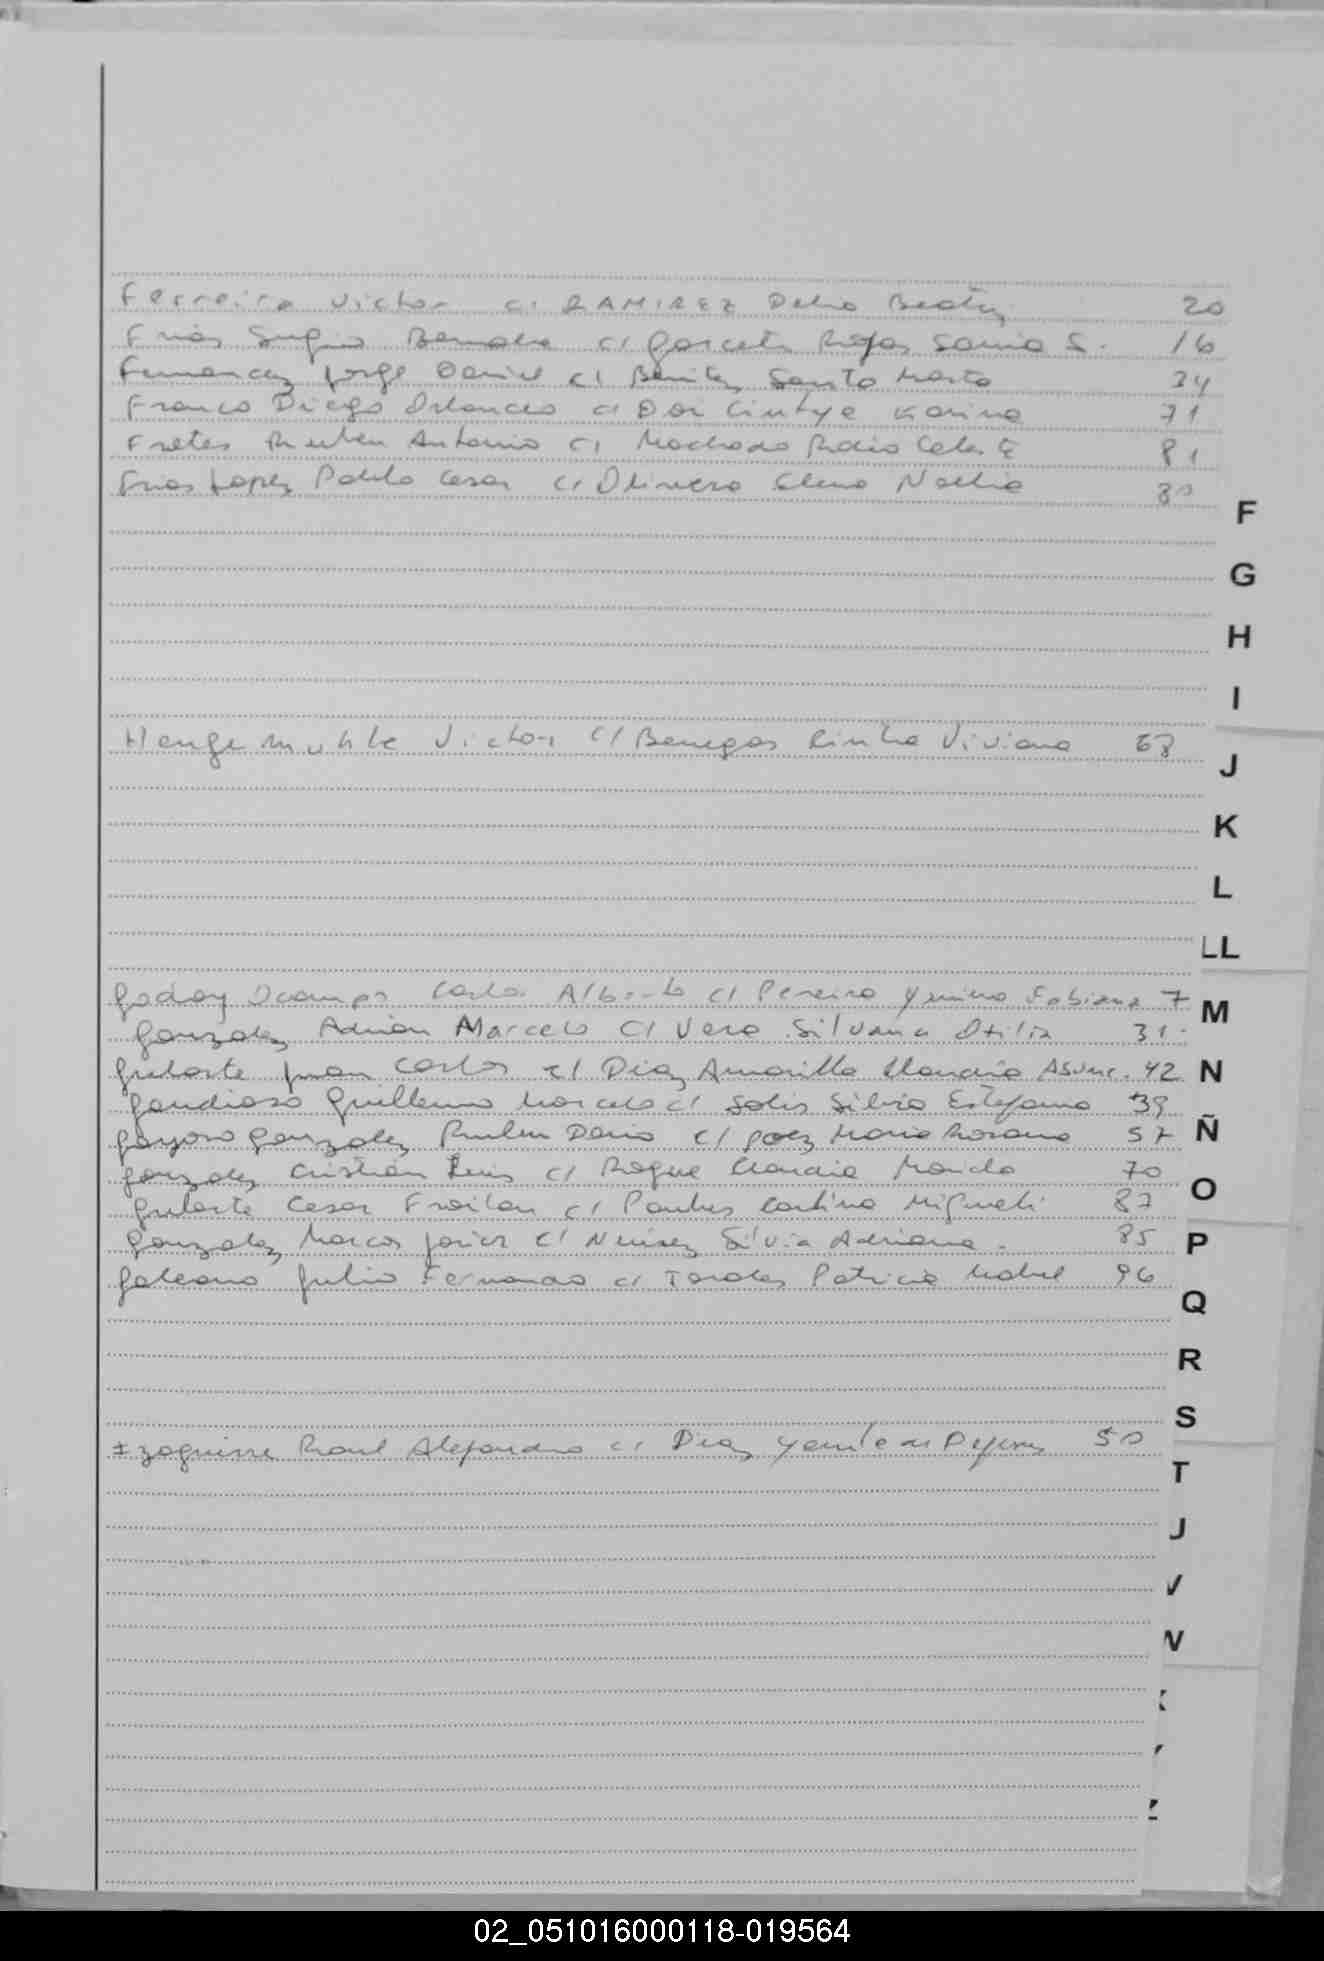 Ferreira Victor c/ RAMIREZ Delia Beatriz 20
Frias Sergio Bernabe c/ Garcete Rojas Sonia S. 16
Fernandez Jorge Daniel c/ Benitez Santa Marta 34
Franco Diego Orlando c/ Cintya Karina 71
Fretes Ruben Antonio c/ Machado Rocio Celeste 81
Frias Lopez Pablo Cesar c/ Olivera Elena Noelia 80
F
G
H
I
Hengemuhle Victor c/ Benegas Cintia Viviana 68
J
K
L
LL
Godoy Ocampo Carlos Alberto c/ Pereira Yanina Fabiana 7
M
Gonzalez Adrian Marcelo c/ Vera Silvana Otilia 31
Gularte Juan Carlos c/ Diaz Amarilla Claudia Asunc. 42
N
Gaudioso Guillermo Marcelo c/ Solis Silvia Estefania 39
Gayoso Gonzalez Ruben Dario c/ Paez Maria Rosana 57
Ñ
Gonzalez Cristian Luis c/ Roque Claudia 70
O
Gularte Cesar Froilan c/ Carlina 87
Gonzalez Marcos Javier c/ Nuñez Silvia Adriana. 85
P
Galeano Julio Fernando c/ Torales Patricia Mabel 96
Q
R
S
Izaguirre Raul Alejandro c/ Diaz 50
T
J
V
W
Z
02_051016000118-019564